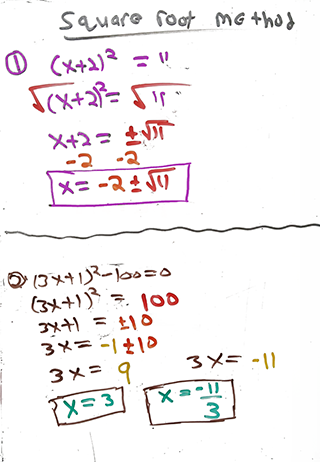 Square root method
① (x+2)² = 11
√(x+2)² = √11
x+2 = ±√11
-2 -2
x = -2 ± √11
② (3x+1)²-100=0
(3x+1)² = 100
3x+1 = ±10
3x = -1±10
3x = 9 3x = -11
x = 3 x = -11/3